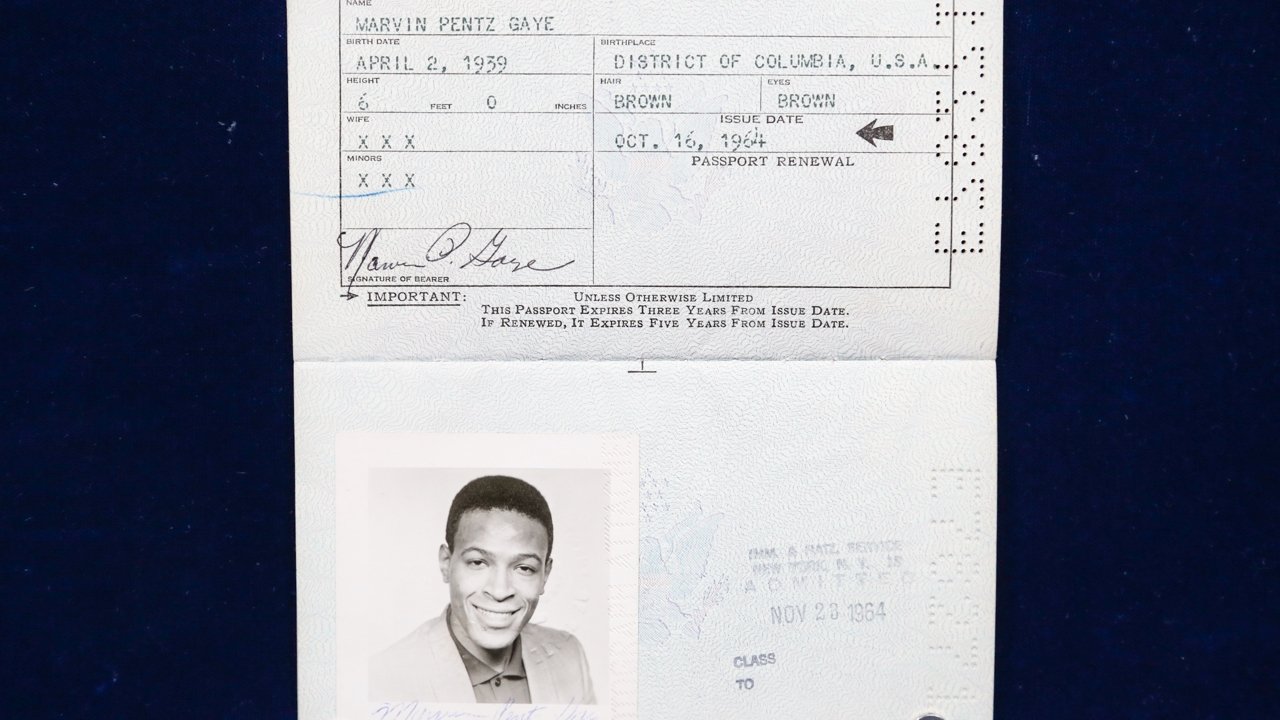 NAME
MARVIN PENTZ GAYE
BIRTH DATE
APRIL 2, 1939
BIRTHPLACE
DISTRICT OF COLUMBIA, U.S.A.
HEIGHT
6 FEET 0 INCHES
HAIR
BROWN
EYES
BROWN
WIFE
X X X
ISSUE DATE
OCT. 16, 1964
MINORS
X X X
PASSPORT RENEWAL
Marvin P. Gaye
SIGNATURE OF BEARER
IMPORTANT:
UNLESS OTHERWISE LIMITED
THIS PASSPORT EXPIRES THREE YEARS FROM ISSUE DATE.
IF RENEWED, IT EXPIRES FIVE YEARS FROM ISSUE DATE.
IMM. & NATZ. SERVICE
NEW YORK, N.Y.
ADMITTED
NOV 23 1964
CLASS
TO